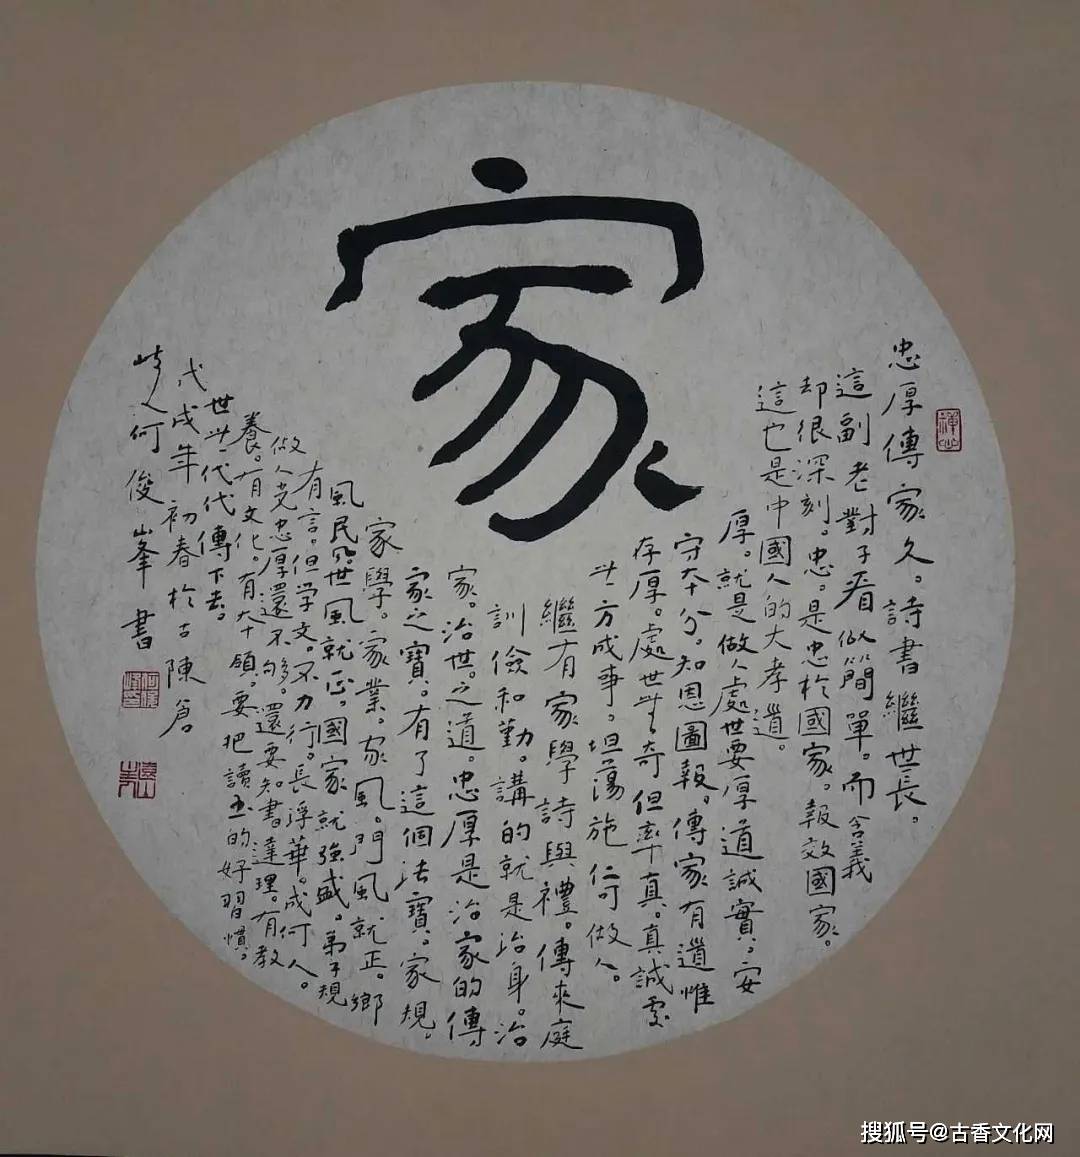 家
忠厚傳家久。詩書繼世長。
這副老對子看似簡單。而含義
却很深刻。忠。是忠於國家。報效國家。
這也是中國人的大孝道。
厚。就是做人處世要厚道誠實。安
守本分。知恩圖報。傳家有道惟
存厚。處世無奇但率真。真誠處
世方成事。坦蕩施仁可做人。
繼有家學詩與禮。傳來庭
訓儉和勤。講的就是治身。治
家。治世。之道。忠厚是治家的傳
家之寶。有了這個法寶。家規。
家學。家業。家風。門風就正。鄉
風民風。世風就正。國家就強盛。弟子規
有言。但学文。不力行。長浮華。成何人。
做人光忠厚還不夠。還要知書達理。有教
養。有文化。有本領。要把讀书的好習慣。
世世代代傳下去。
戊戌年初春於古陳倉
岐人何俊峯書
搜狐号@古香文化网